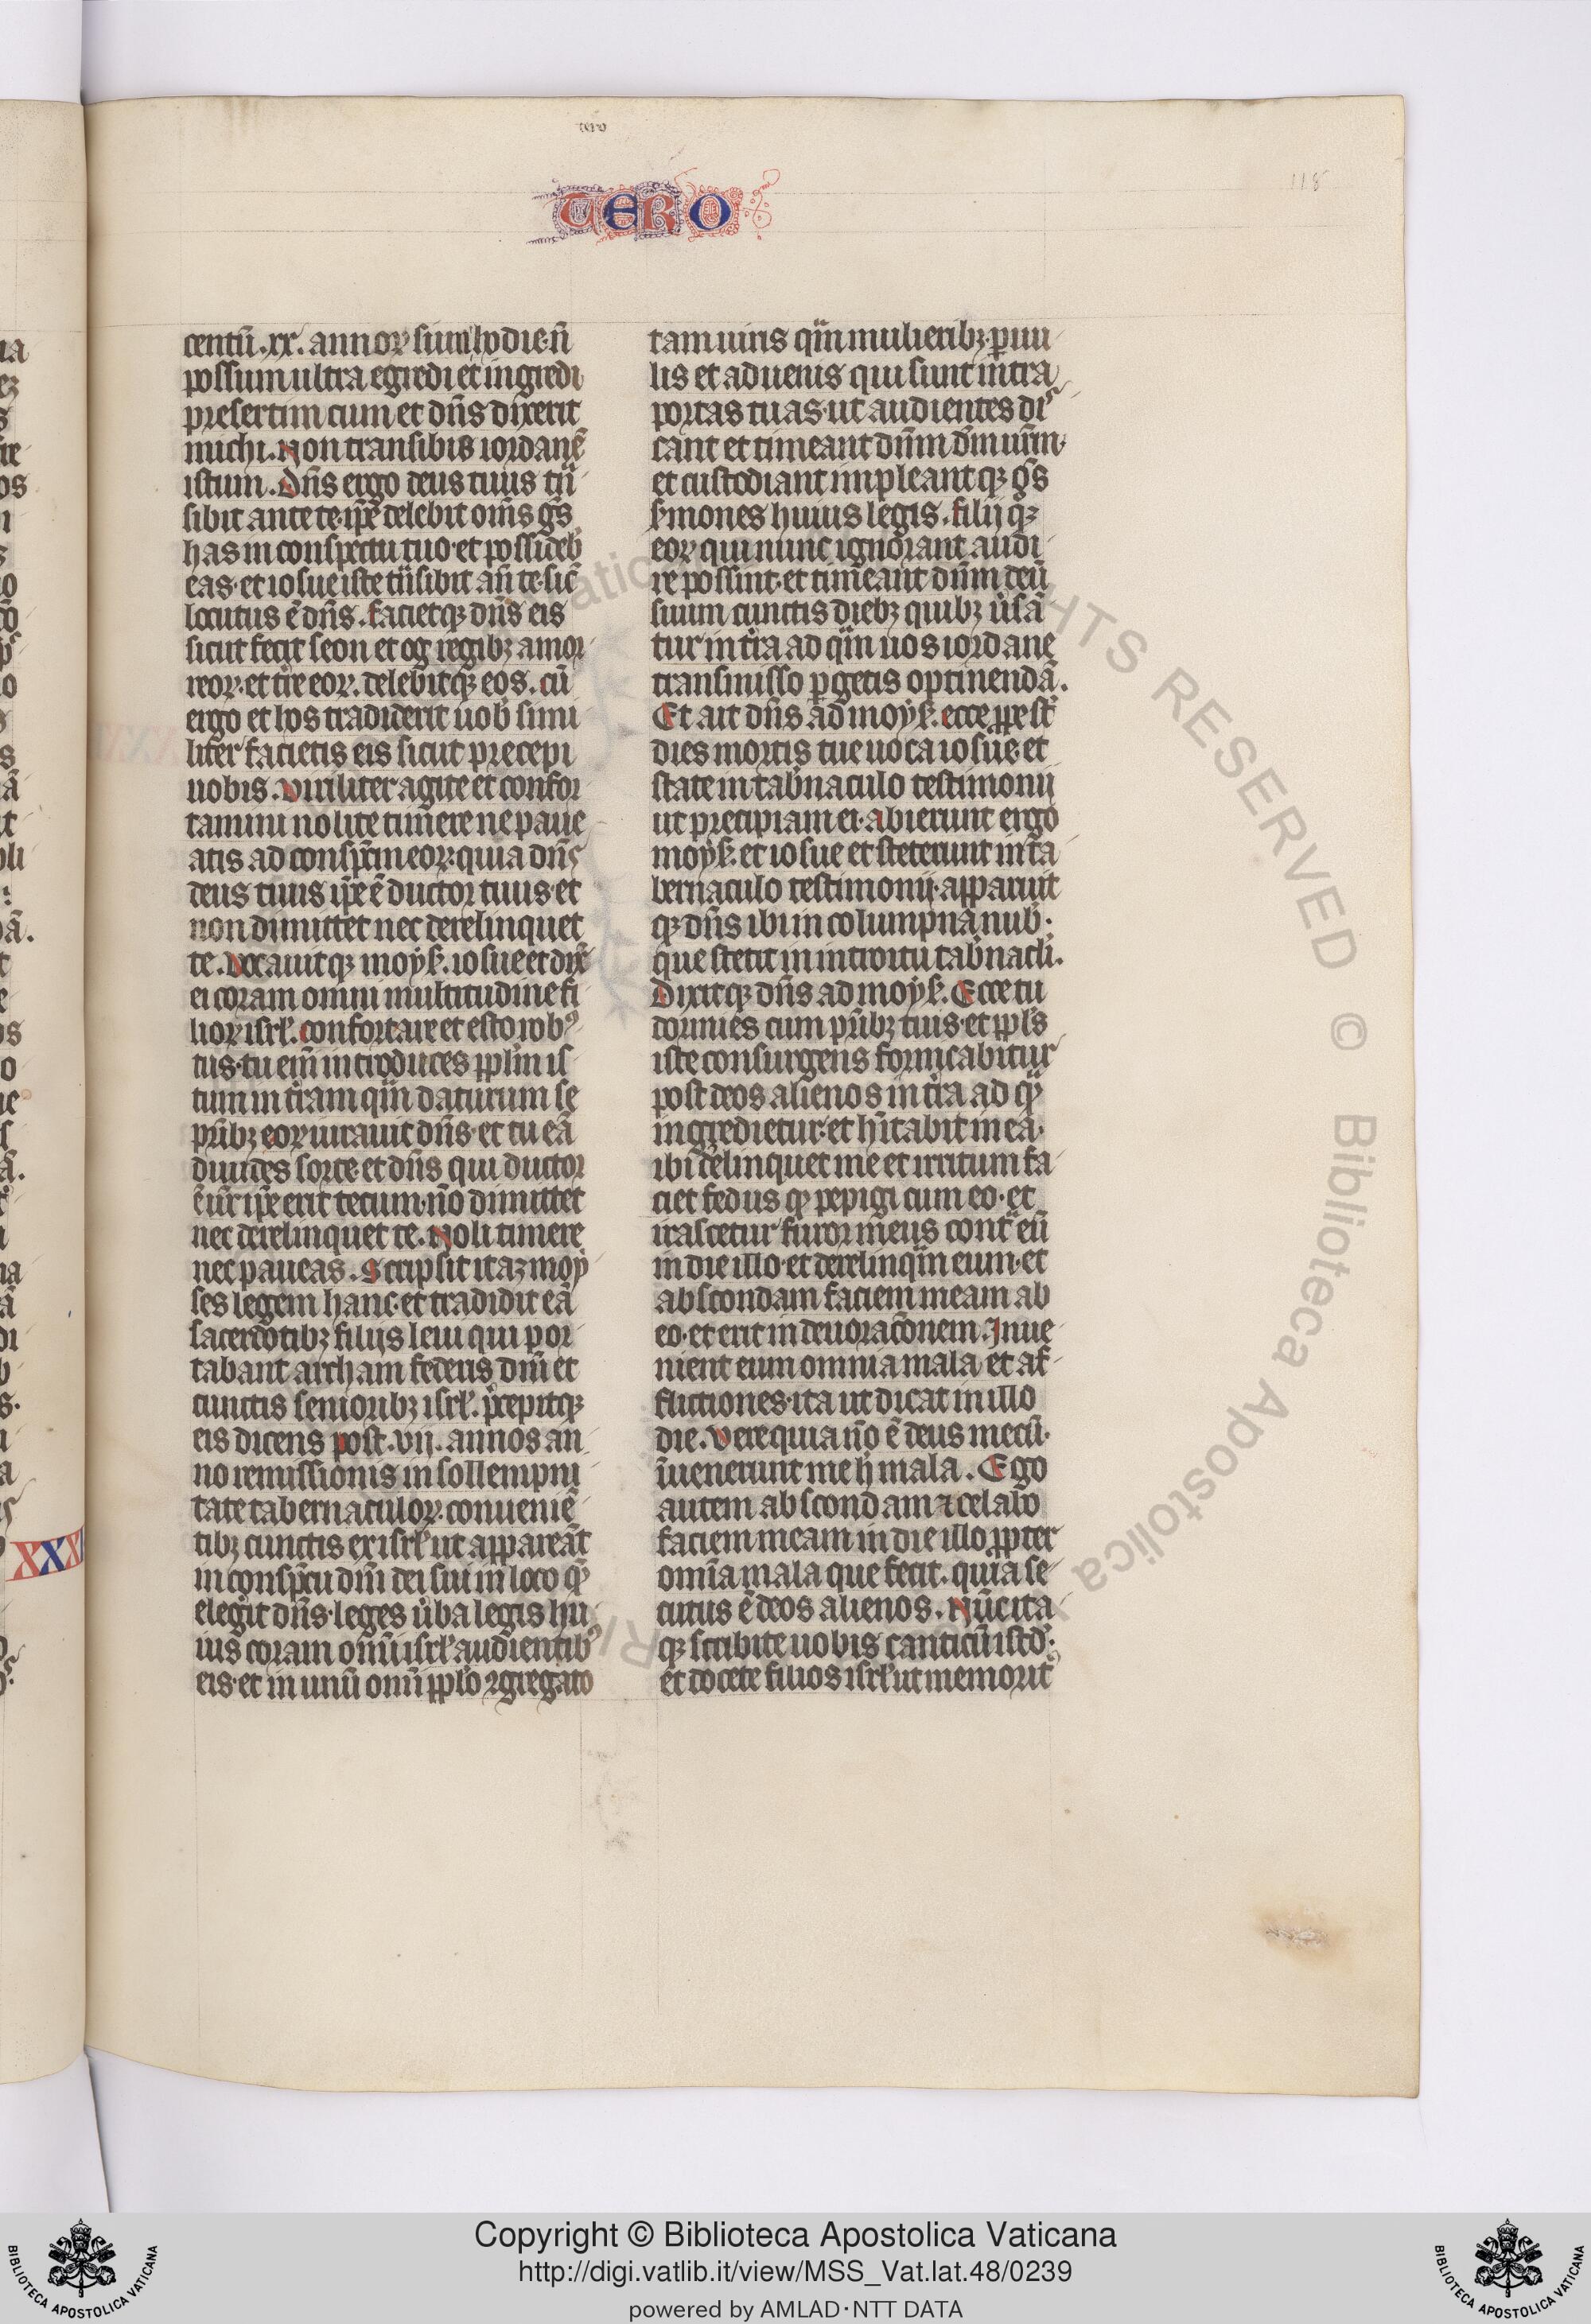 tero
TERO
118
centū .xx. annoꝝ sum hodie· n̄
possum ultra egredi et ingredi
presertim cum et dn̄s dixerit
michi. Non transibis iordanē
istum. Dn̄s ergo deus tuus tn̄
sibit ante te· ip̄e delebit om̄s gn̄s
has in conspectu tuo· et possideb̄
eas· et iosue iste tn̄sibit an̄ te· sic̄
locutus ē dn̄s. facietqꝫ dn̄s eis
sicut fecit seon et og regibꝫ amor
reoꝝ· et tr̄e eoꝝ. delebitqꝫ eos. cū
ergo et hos tradiderit uob̄ simi
liter facietis eis sicut precepi
uobis. viriliter agite et confor
tamini nolite timere ne paue
atis ad consp̄tm eoꝝ· quia dn̄s
deus tuus ip̄e ē ductor tuus· et
non dimittet nec derelinquet
te. Vocauitqꝫ moyẜ. iosue et dix̄
ei coram omni multitudine fi
lioꝝ isrl̄. confortare et esto robꝰ
tus· tu eni̅ introduces ppl̄m is
tum in tr̄am qm̄ daturum se
pr̄ibꝫ eoꝝ iurauit dn̄s· et tu eā
diuides sorte· et dn̄s qui ductor
ē ur̄ ip̄e erit tecum· nō dimittet
nec derelinquet te. Noli timere
nec paueas. Scripsit itaꝫ moy
ses legem hanc· et tradidit eā
sacerdotibꝫ filijs leui qui por
tabant archam federis dn̄i et
cunctis senioribꝫ isrl̄. p̄cepitqꝫ
eis dicens post .vij. annos an
no remissionis in sollempni
tate tabernaculoꝝ· conueniē
tibꝫ cunctis ex isrl̄ ut appareāt
in consp̄tu dn̄i dei sui in loco qͦ
elegit dn̄s· leges ūba legis hu
ius coram omni isrl̄ audientibꝰ
eis· et in unū omī ppl̄o ꝯgregato
tam uiris qm̄ mulieribꝫ· paruu
lis et aduenis qui sunt intra
portas tuas· ut audientes dis
cant et timeant dn̄m dm̄ ur̄m·
et custodiant impleantqꝫ om̄s
ẜmones huius legis. filij qͦꝫ
eoꝝ qui nunc ignorant audi
re possint· et timeant dn̄m deū
suum cunctis diebꝫ quibꝫ ūsā
tur in tr̄a ad qm̄ uos iordane
transmisso ꝑgetis optinendā.
Et ait dn̄s ad moyẜ. ecce ꝓpe st̄
dies mortis tue uoca iosue· et
state in tab̄naculo testimonij
ut precipiam ei· abierunt ergo
moyẜ. et iosue et steterunt in ta
bernaculo testimonij· apparuit
qꝫ dn̄s ibi in columpna nub̄·
que stetit in introitu tab̄nacl̄i.
Dixitqꝫ dn̄s ad moyẜ. Ecce tu
dormies cum pr̄ibꝫ tuis· et ppl̄s
iste consurgens fornicabitur
post deos alienos in tr̄a ad qͣ
ingredietur· et h̄itabit in ea·
ibi d̄elinquet me et irritum fa
ciet fedus qͦ pepigi cum eo· et
irascetur furor meus contͣ eū
in die illo· et derelinqm̄ eum· et
abscondam faciem meam ab
eo· et erit in deuorac̄onem. Inue
nient eum omnia mala et af
flictiones· ita ut dicat in illo
die. Vere quia nō ē deus mecū·
īuenerunt me h̄ mala. Ego
autem abscondam ⁊ celabo
faciem meam in die illo ꝓpter
om̄ia mala que fecit. quia se
cutus ē deos alienos. Nūc ita
qꝫ scribite uobis canticū istd̄·
et docete filios isrl̄ ut memorit̉
XXXI
Copyright © Biblioteca Apostolica Vaticana
http://digi.vatlib.it/view/MSS_Vat.lat.48/0239
powered by AMLAD·NTT DATA
BIBLIOTECA APOSTOLICA VATICANA
BIBLIOTECA APOSTOLICA VATICANA